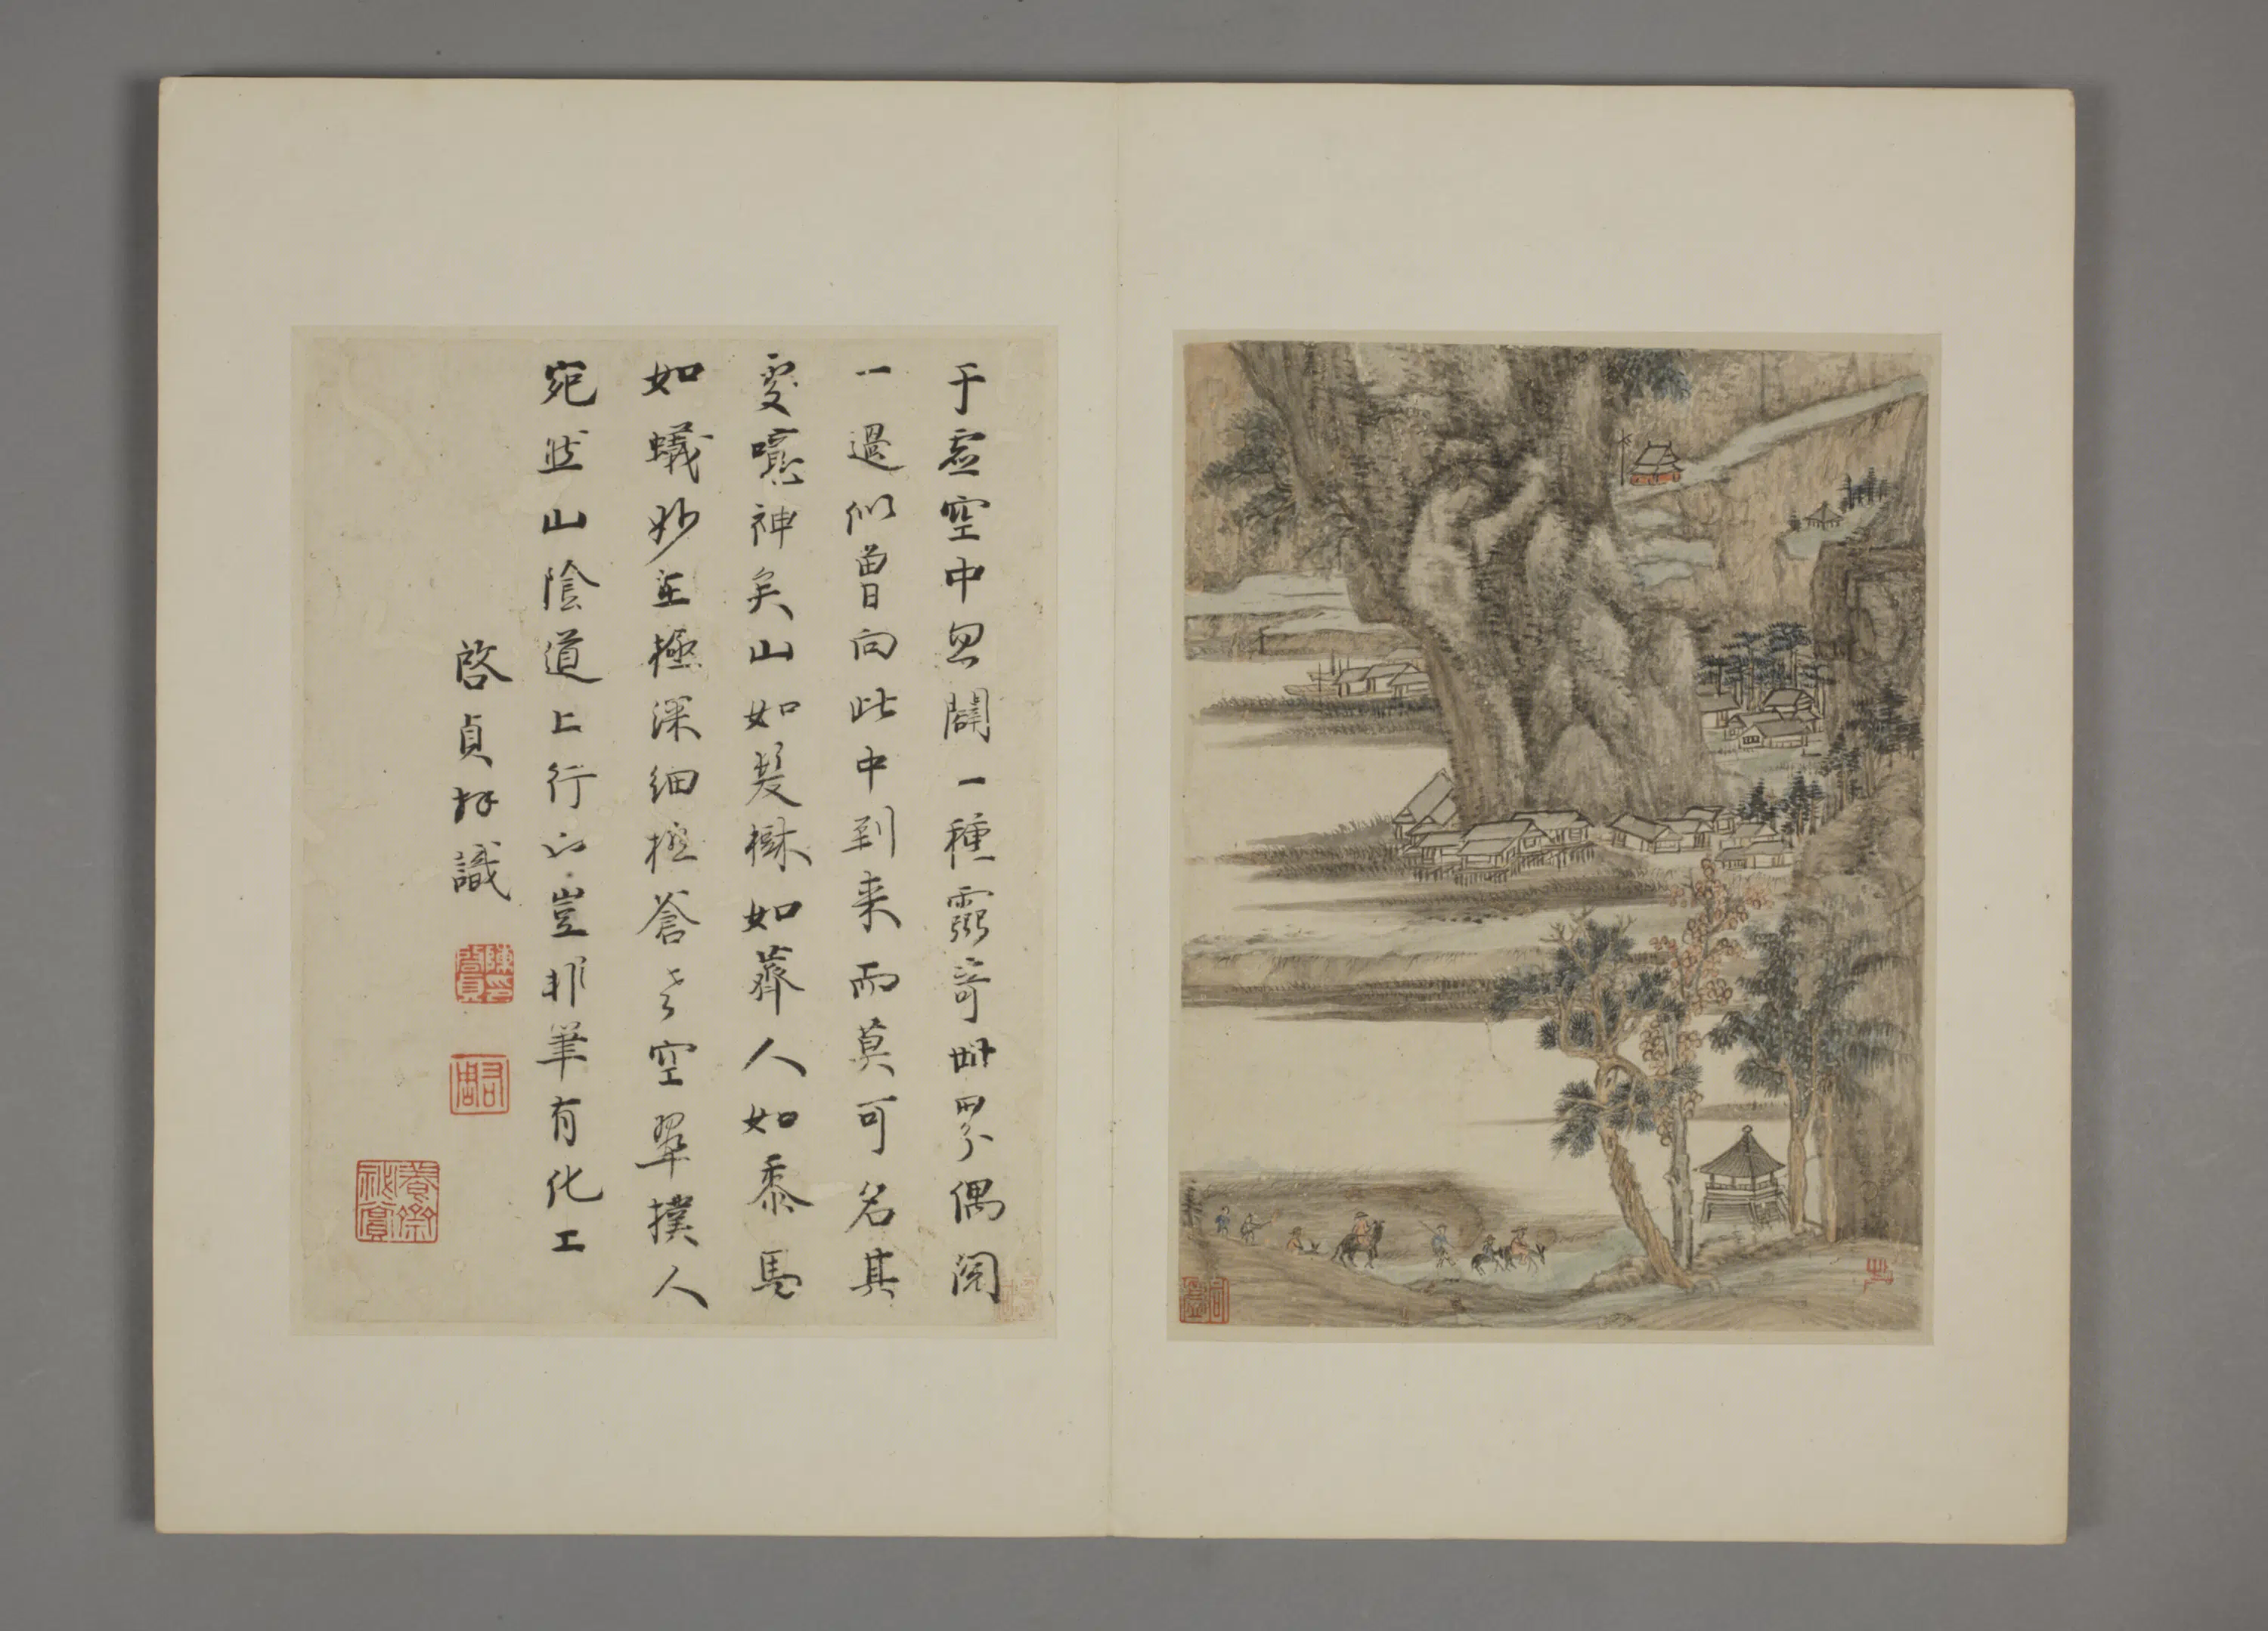 于虚空中忽闢一種靈奇世界偶閱
一過似曾向此中到来而莫可名其
處噫神矣山如髮樹如薺人如黍馬
如蟻妙在極深細極蒼老空翠撲人
宛然山陰道上行也豈非筆有化工
啓貞拜識
陳印啓貞